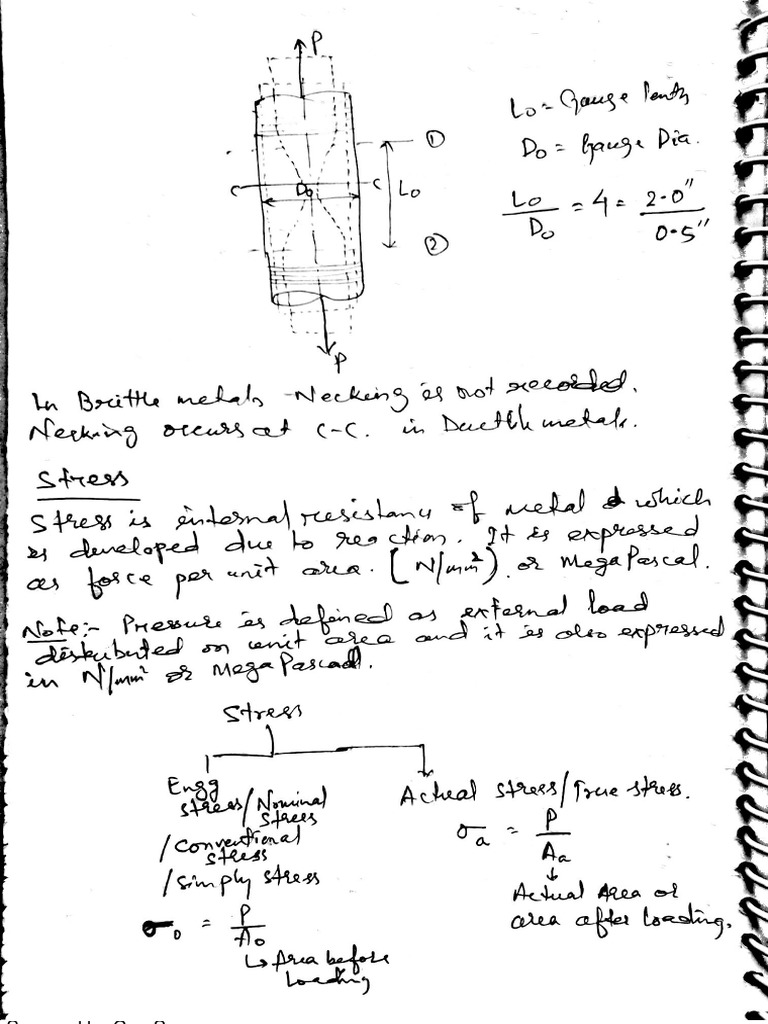 P
L₀ = Gauge lenth
D₀ = Gauge Dia.
L₀/D₀ = 4 = 2.0"/0.5"
①
C
D₀
C
L₀
②
P
In Brittle metals - Necking is not recorded.
Necking occurs at C-C. in Ductile metals.
Stress
Stress is internal resistance of metal which
is developed due to reaction. It is expressed
as force per unit area. [N/mm²). or Mega Pascal.
Note:- Pressure is defined as external load
distributed on unit area and it is also expressed
in N/mm² or Mega Pascal.
Stress
Engg
stress/Nominal
stress
/conventional
stress
/simply stress
σ₀ = P/A₀
↳ Area before
loading
Actual stress/True stress.
σₐ = P/Aₐ
↓
Actual Area or
area after loading.